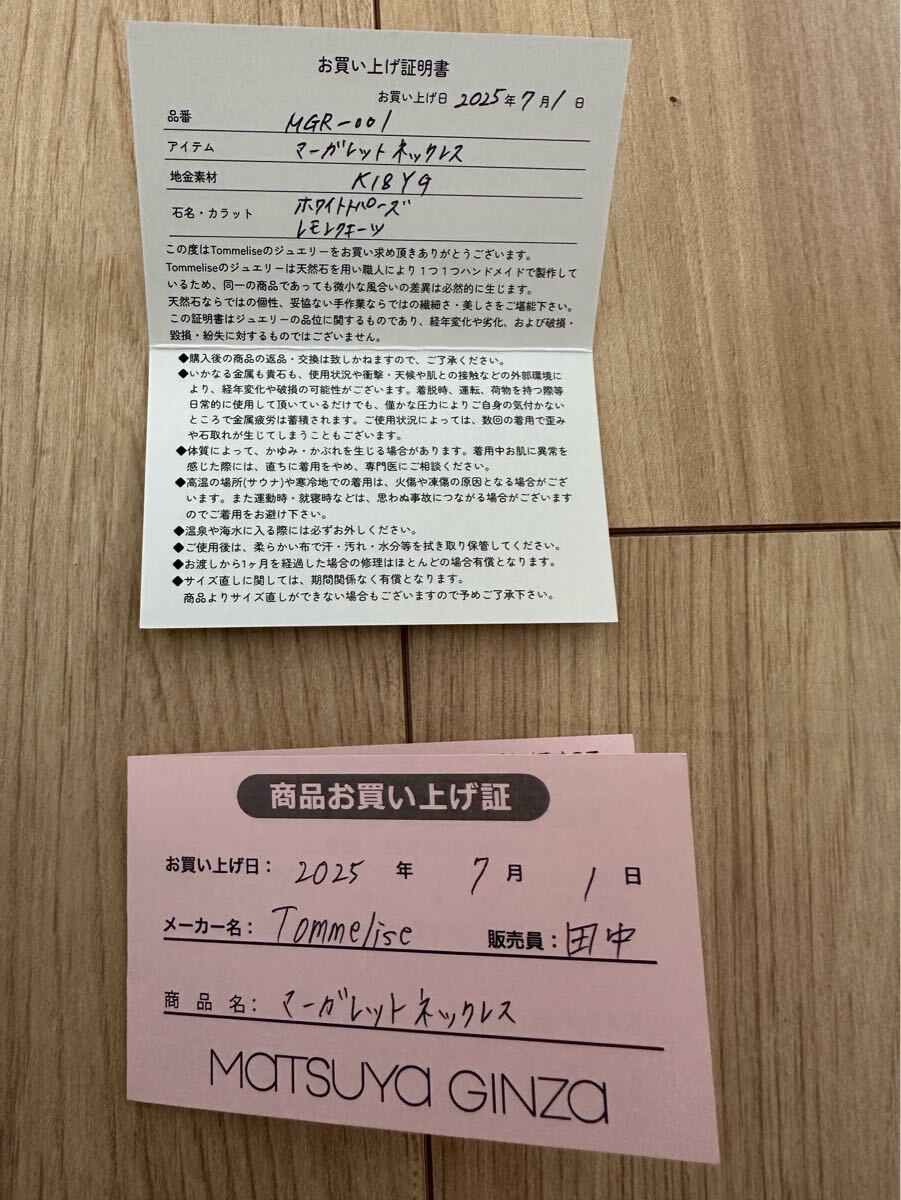 お買い上げ証明書
お買い上げ日 2025年7月1日
品番 MGR-001
アイテム マーガレットネックレス
地金素材 K18YG
石名・カラット ホワイトトパーズ
レモンクォーツ
この度はTommeliseのジュエリーをお買い求め頂きありがとうございます。
Tommeliseのジュエリーは天然石を用い職人により1つ1つハンドメイドで製作して
いるため、同一の商品であっても微小な風合いの差異は必然的に生じます。
天然石ならではの個性、妥協ない手作業ならではの繊細さ・美しさをご堪能下さい。
この証明書はジュエリーの品位に関するものであり、経年変化や劣化、および破損・
毀損・紛失に対するものではございません。
◆購入後の商品の返品・交換は致しかねますので、ご了承ください。
◆いかなる金属も貴石も、使用状況や衝撃・天候や肌との接触などの外部環境に
より、経年変化や破損の可能性がございます。着脱時、運転、荷物を持つ際等
日常的に使用して頂いているだけでも、僅かな圧力によりご自身の気付かない
ところで金属疲労は蓄積されます。ご使用状況によっては、数回の着用で歪み
や石取れが生じてしまうこともございます。
◆体質によって、かゆみ・かぶれを生じる場合があります。着用中お肌に異常を
感じた際には、直ちに着用をやめ、専門医にご相談ください。
◆高温の場所(サウナ)や寒冷地での着用は、火傷や凍傷の原因となる場合がござ
います。また運動時・就寝時などは、思わぬ事故につながる場合がございます
のでご着用をお避け下さい。
◆温泉や海水に入る際には必ずお外しください。
◆ご使用後は、柔らかい布で汗・汚れ・水分等を拭き取り保管してください。
◆お渡しから1ヶ月を経過した場合の修理はほとんどの場合有償となります。
◆サイズ直しに関しては、期間関係なく有償となります。
商品よりサイズ直しができない場合もございますので予めご了承下さい。
商品お買い上げ証
お買い上げ日: 2025 年 7 月 1 日
メーカー名: Tommelise 販売員: 田中
商品名: マーガレットネックレス
MATSUYA GINZA